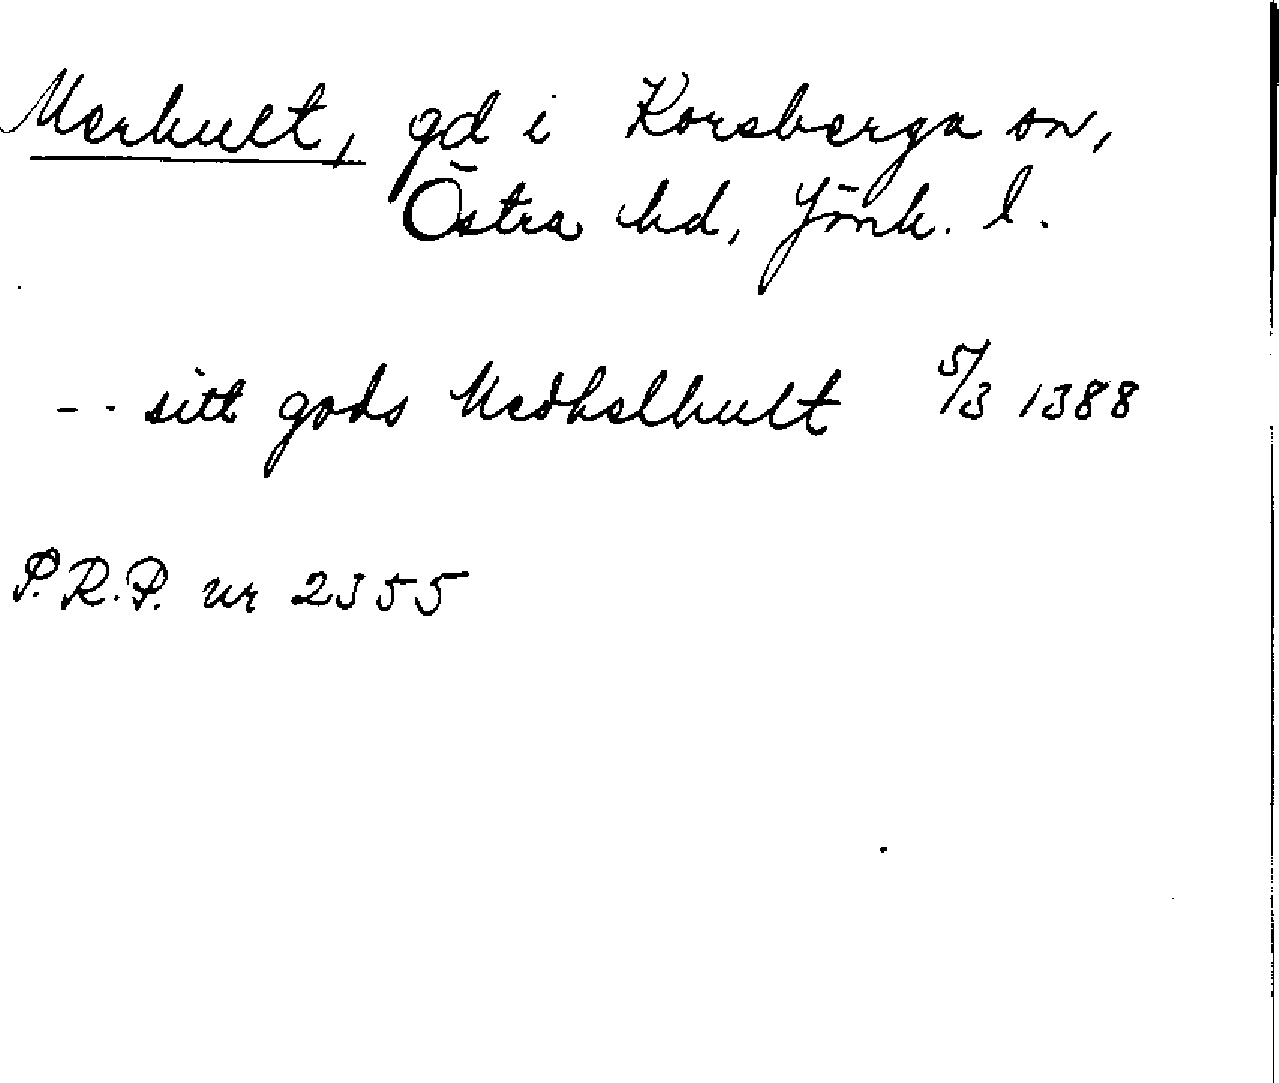 Merhult, gd i Korsberga sn,
Östra hd, Jönk. l.
-- sitt gods Medhelhult 5/3 1388
P.R.P. nr 2355